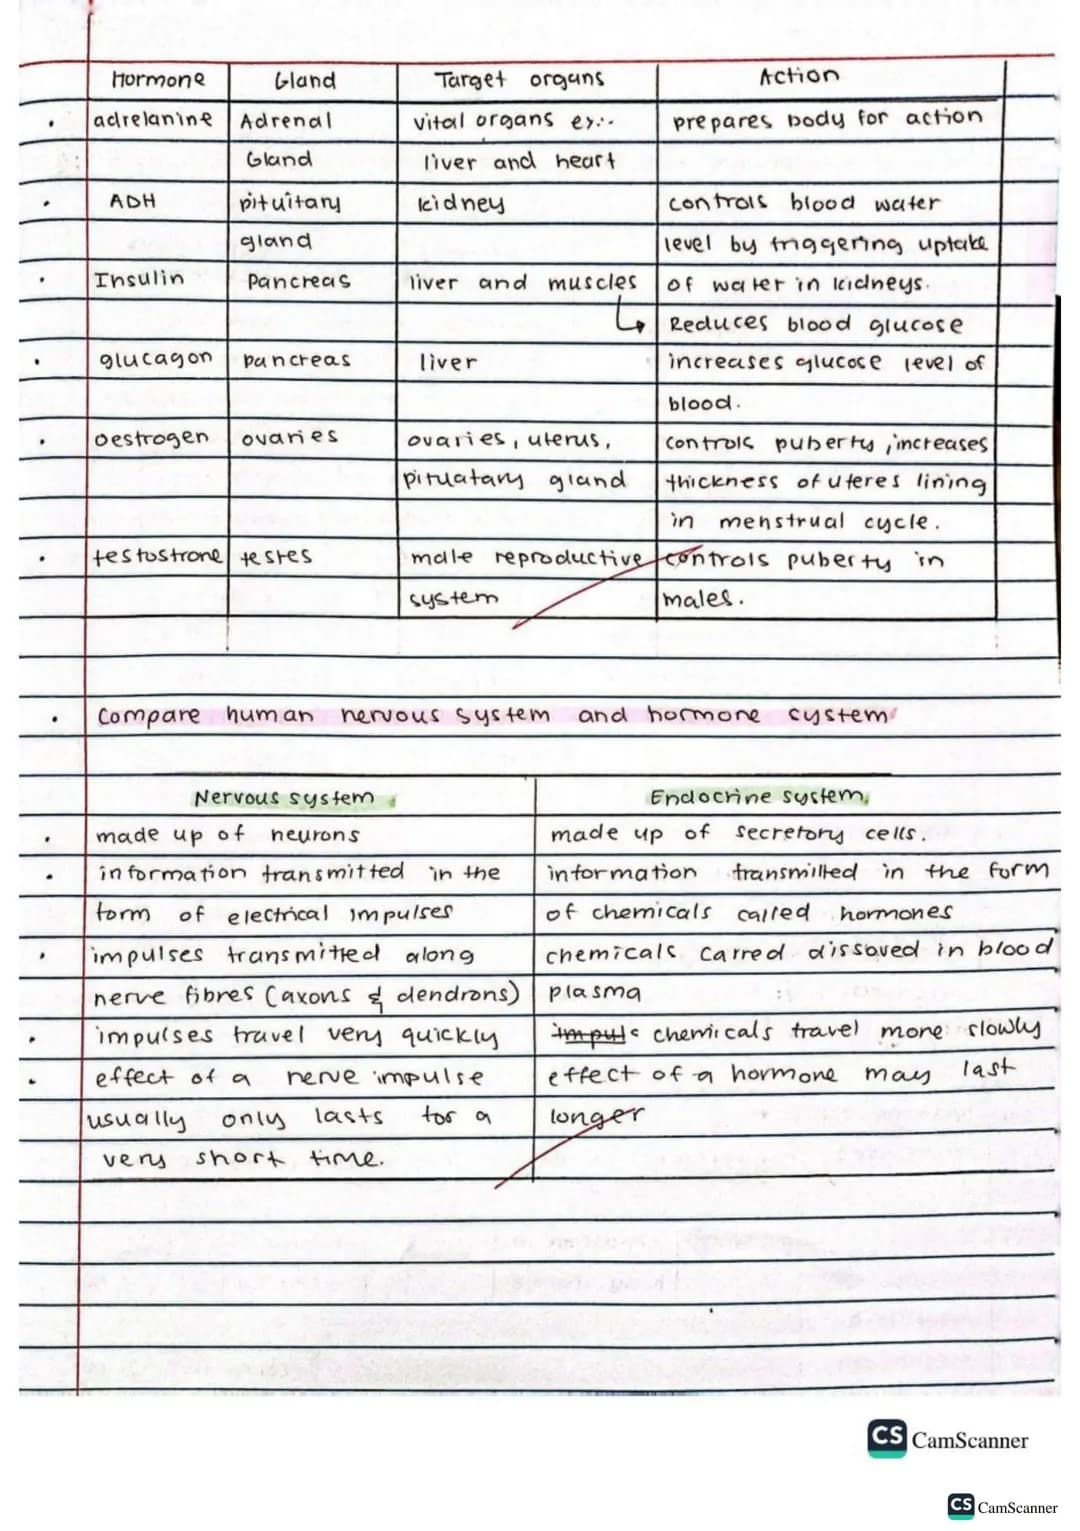 Hormone Gland Target organs Action
adrelanine Adrenal vital organs ex:. prepares body for action
Gland liver and heart
ADH pituitary kidney controls blood water
gland level by triggering uptake
Insulin Pancreas liver and muscles of water in kidneys.
↳ Reduces blood glucose
glucagon pancreas liver increases glucose level of
blood.
oestrogen ovaries ovaries, uterus, controls puberty, increases
pituatary gland thickness of uteres lining
in menstrual cycle.
testostrone testes male reproductive controls puberty in
system males.
Compare human nervous system and hormone system
Nervous system Endocrine system
made up of neurons made up of secretory cells.
information transmitted in the information transmitted in the form
form of electrical impulses of chemicals called hormones
impulses transmitted along chemicals carred dissoved in blood
nerve fibres (axons & dendrons) plasma
impulses travel very quickly impuls chemicals travel more slowly
effect of a nerve impulse effect of a hormone may last
usually only lasts for a longer
very short time.
CS CamScanner
CS CamScanner